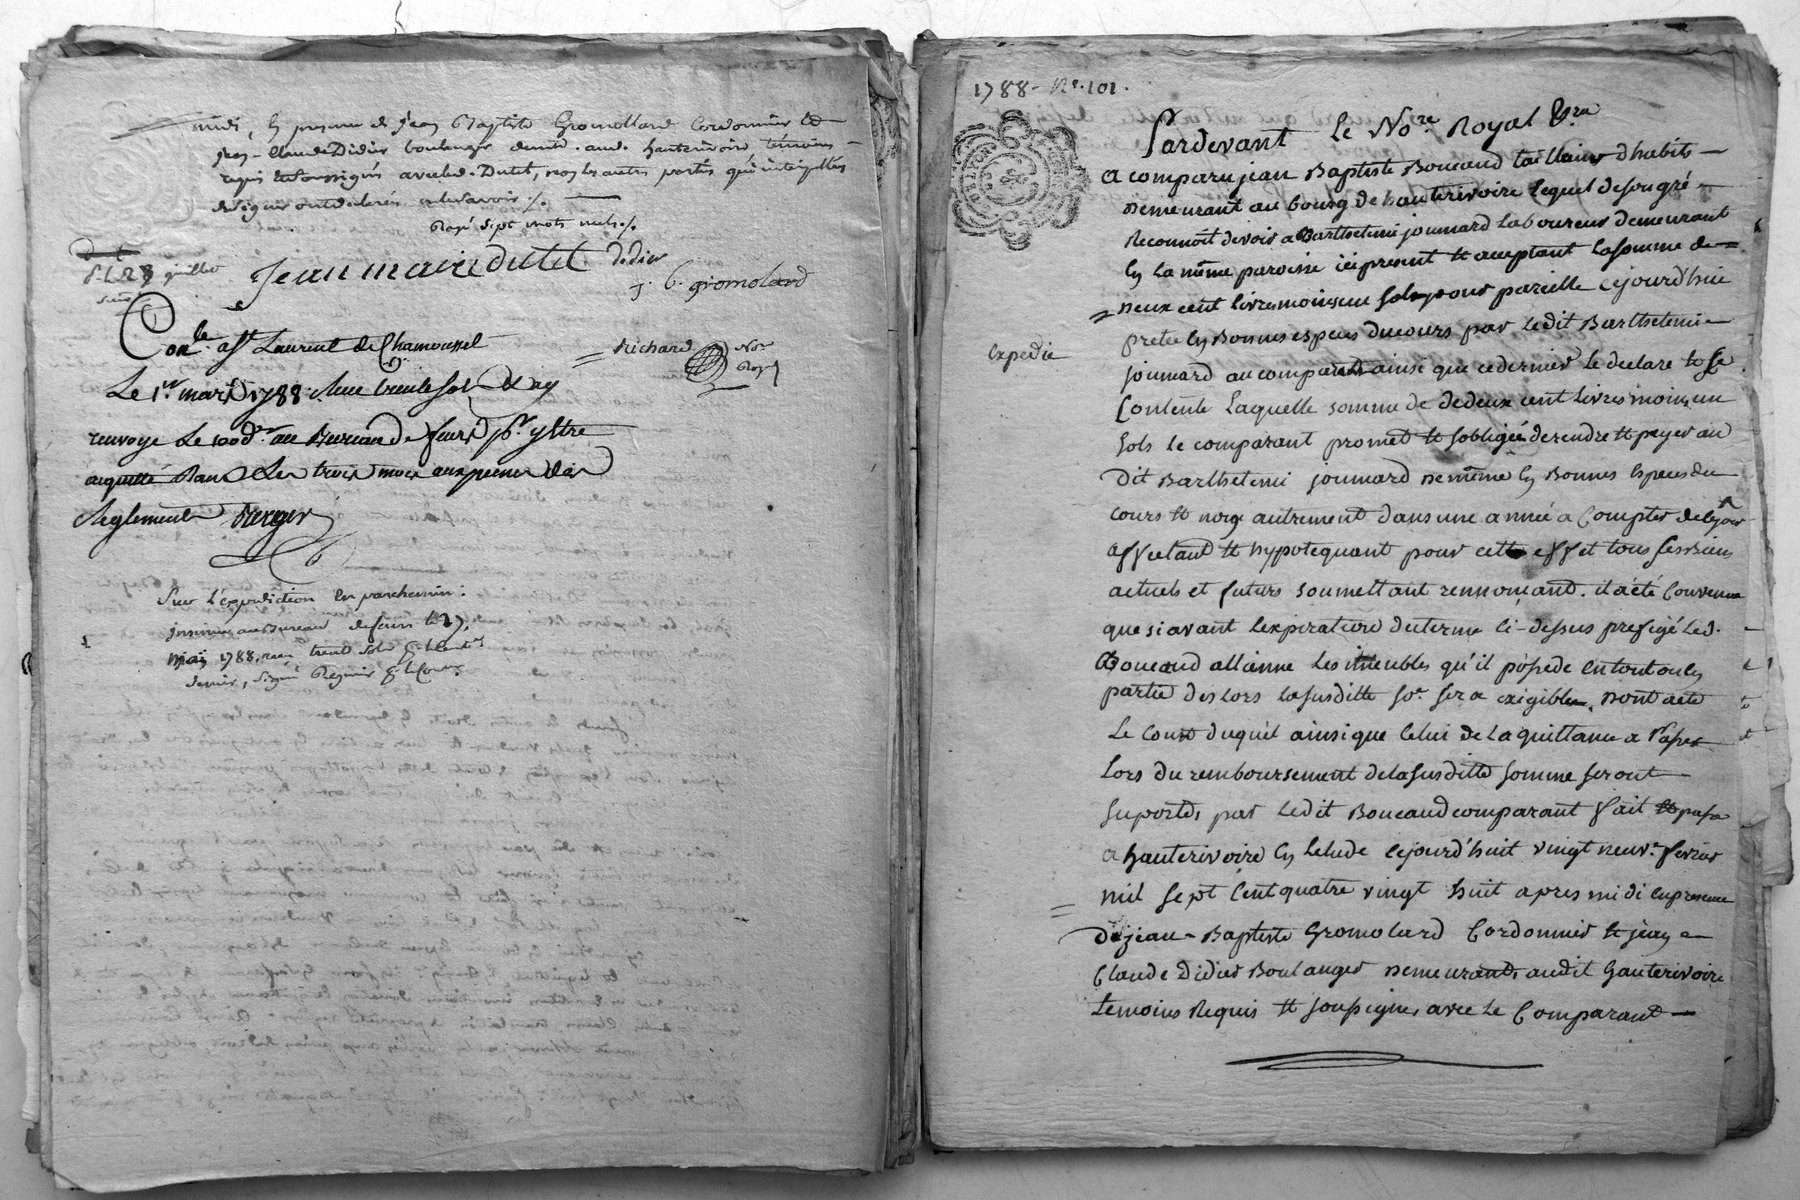 midi, en presence de jean Baptiste Gromollard Cordonnier et
jean-Claude Didier boulanger demt. aud. hauterivoire temoins
requis et soussignés avec led. Dutel, non les autres parties qui interpellés
de signer ont declarés ne le savoir ./.
Rayé sept mots nuls ./.
Jean marie dutel didier
j. b. gromolard
Conlé. a St Laurent de Chamousset
Richard Nore
Royl
Le 1er mars 1788. Reçu trente sols et ay
renvoyé Le 100d.er au Bureau de feurs pr. y Etre
acquitté Dans Les trois mois aux peines des
Reglements Berger
Sur l'expedition en parchemin:
insinué au Bureau de feurs le 27
Mai 1788. reçu trente sols
denier, signé
1788 - No. 101.
Pardevant Le Nore Royal
a comparu jean Baptiste Boucaud taillaire d'habits
demeurant au bourg de hauterivoire lequel de son gré
Reconnoit devoir a Barthelemi joumard laboureur demeurant
en la même paroisse ici present et aceptant la somme de
deux cent livres moins un sols pour pareille Cejourd'hui
pretée en Bonnes especes du cours par le dit Barthelemi
expedié
joumard au comparant ainsi que ce dernier le declare et se
Contente Laquelle somme de de deux cent Livres moins un
sols le comparant promet et s'obligée de rendre et payer au
Dit Barthelemi joumard de même en Bonnes especes du
cours et non autrement dans une année a Compter de ce jour
affectant et hypotequant pour cette effet tous ses biens
actuels et futurs soumettant rennonçant. il a été Convenu
que si avant l'expiration du terme ci-dessus prefigé led.
Boucaud alliénne les imeubles qu'il possede en tout ou en
partie des lors la susditte so.e sera exigible. Dont acte
Le Coust duquel ainsi que Celui de La quittance a Passer
Lors du remboursement de la susditte somme seront
suportés par ledit Boucaud comparant fait et passé
a hauterivoire en l'etude cejourd'huit vingt neuf. fevrier
mil sept Cent quatre vingt huit apres midi en presence
de jean-Baptiste Gromolard Cordonnier et jean
Claude Didier Boulanger demeurants audit hauterivoire
temoins Requis et soussignes avec Le Comparant